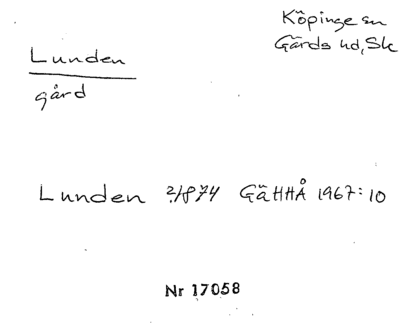 Köpinge sn
Gärds hd, Sk
Lunden
gård
Lunden 2/1874 GäHHÅ 1967:10
Nr 17058